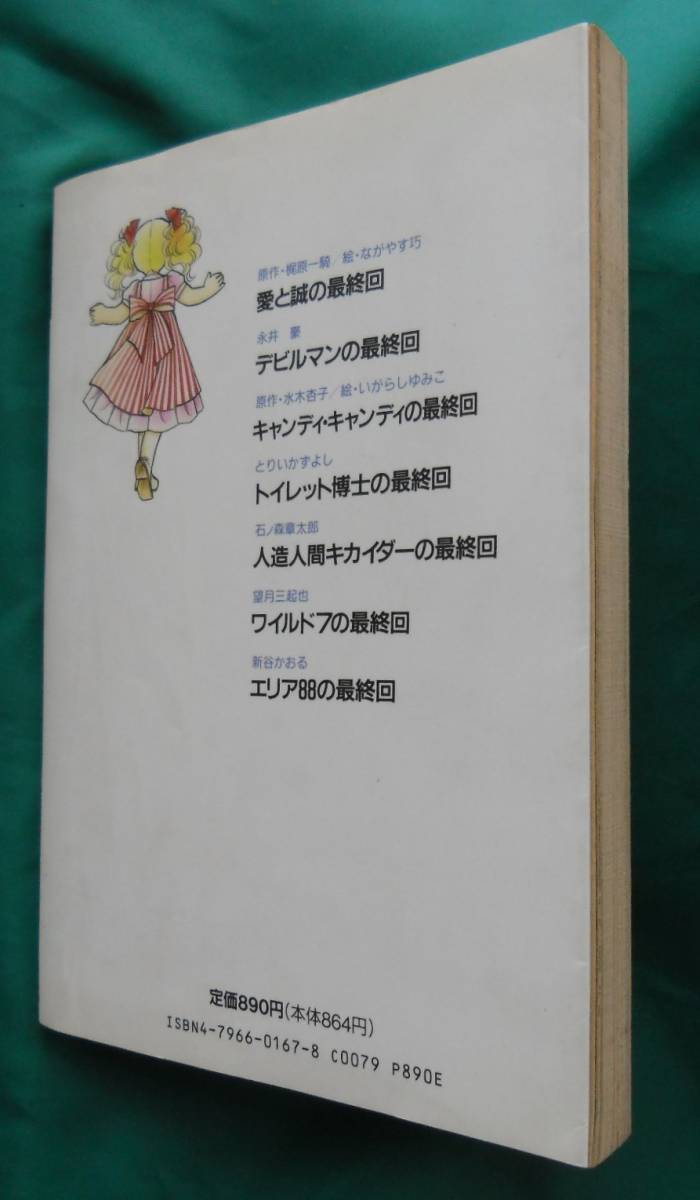 原作・梶原一騎／絵・ながやす巧
愛と誠の最終回
永井　豪
デビルマンの最終回
原作・水木杏子／絵・いがらしゆみこ
キャンディ・キャンディの最終回
とりいかずよし
トイレット博士の最終回
石ノ森章太郎
人造人間キカイダーの最終回
望月三起也
ワイルド7の最終回
新谷かおる
エリア88の最終回
定価890円(本体864円)
ISBN4-7966-0167-8 C0079 P890E